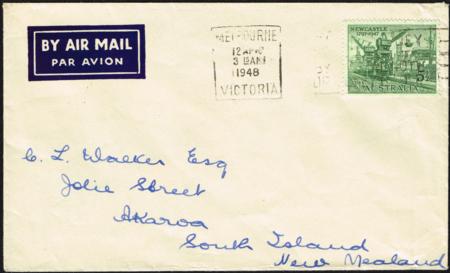 BY AIR MAIL
PAR AVION
MELBOURNE
12 AP
1948
VICTORIA
NEWCASTLE
1797-1947
AUSTRALIA
C. L. Walker Esq
Jolie Street
Akaroa
South Island
New Zealand